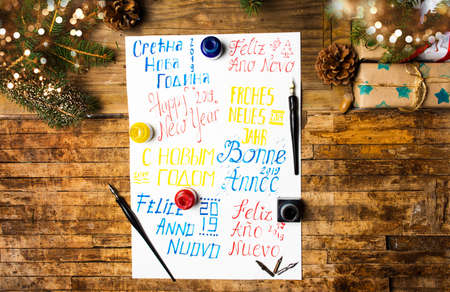 Срећна 2019
Нова
Година
Feliz
Ano Novo
Happy 2019
New Year
FROHES
NEUES 2019
JAHR
С НОВЫМ
2019 ГОДОМ
Bonne
2019
Année
FELICE 2019
ANNO
NUOVO
Feliz
Año 2019
Nuevo